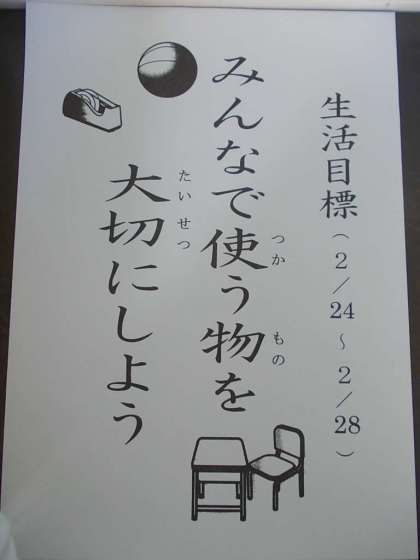 生活目標(2/24~2/28)
みんなで使う物を
つか
もの
大切にしよう
たいせつ